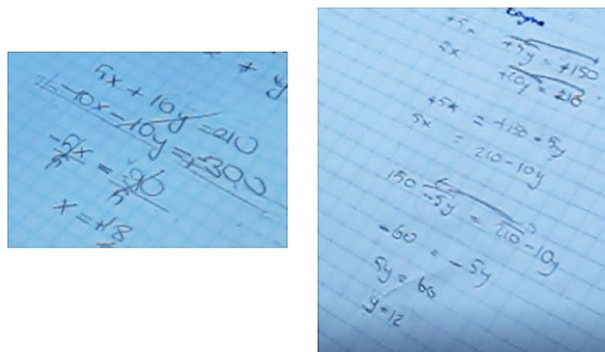 5x + 10y = 210
-10x - 10y = -300
-5x = -90
x = +18
+5x +5y = +150
5x +10y = 210
+5x = +150 - 5y
5x = 210 - 10y
150 - 5y = 210 - 10y
-60 = -5y
5y = 60
y = 12